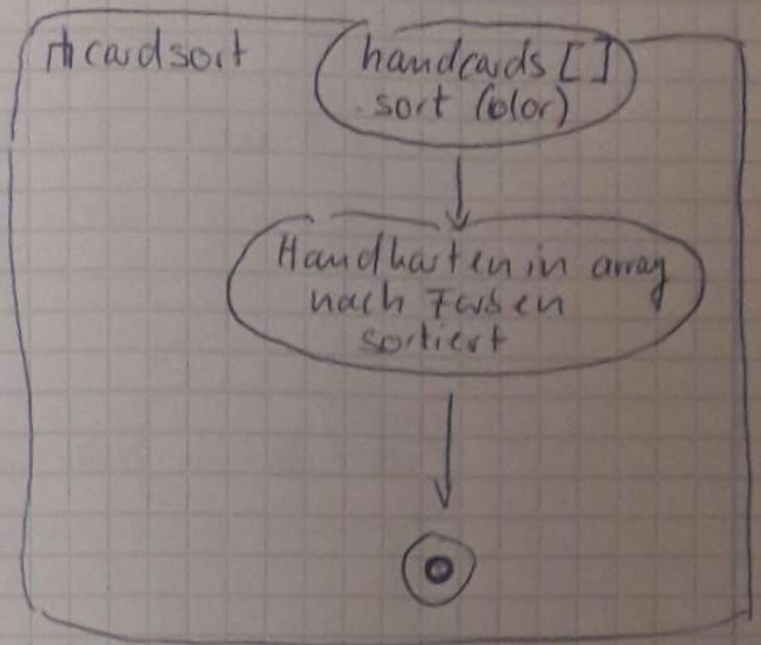 cardsort
handcards []
sort (color)
Handkarten in array
nach Farben
sortiert